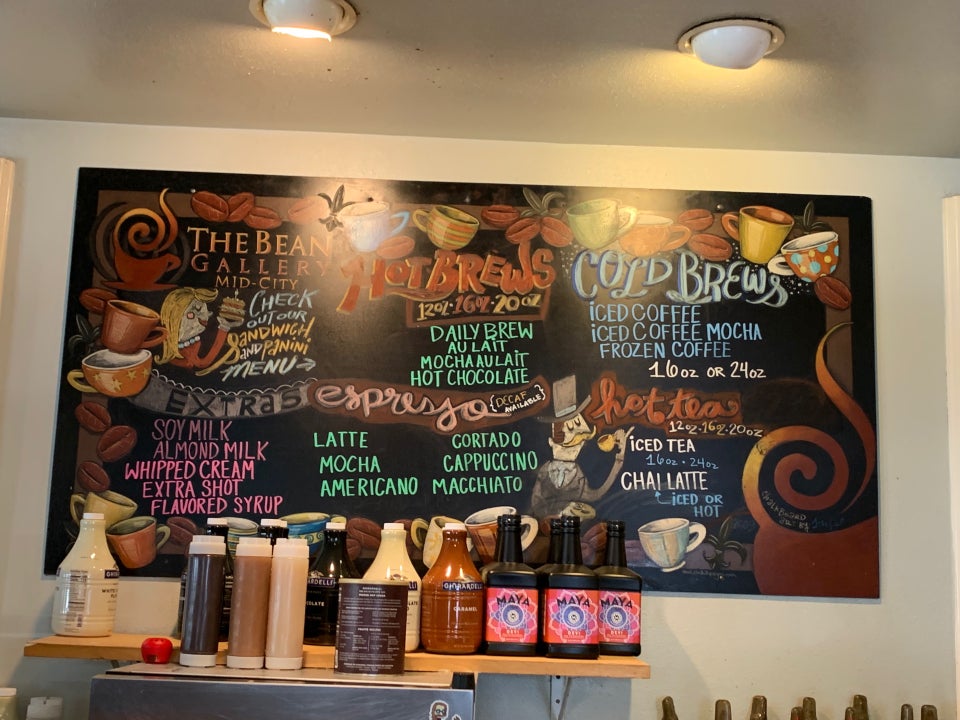 THE BEAN
GALLERY
MID-CITY
CHECK
OUT OUR
SANDWICH
AND PANINI
MENU
HOT BREWS
12oz · 16oz · 20oz
DAILY BREW
AU LAIT
MOCHA AU LAIT
HOT CHOCOLATE
COLD BREWS
iCED COFFEE
iCED COFFEE MOCHA
FROZEN COFFEE
16oz OR 24oz
EXTRAS
SOY MILK
ALMOND MILK
WHIPPED CREAM
EXTRA SHOT
FLAVORED SYRUP
espresso
{DECAF
AVAILABLE}
LATTE
MOCHA
AMERICANO
CORTADO
CAPPUCCINO
MACCHIATO
hot tea
12oz · 16oz · 20oz
iCED TEA
16oz · 24oz
CHAI LATTE
iCED OR
HOT
CHALKBOARD
ART BY
GHIRARDELLI
CARAMEL
MAYA
DEVI
MAYA
DEVI
MAYA
DEVI